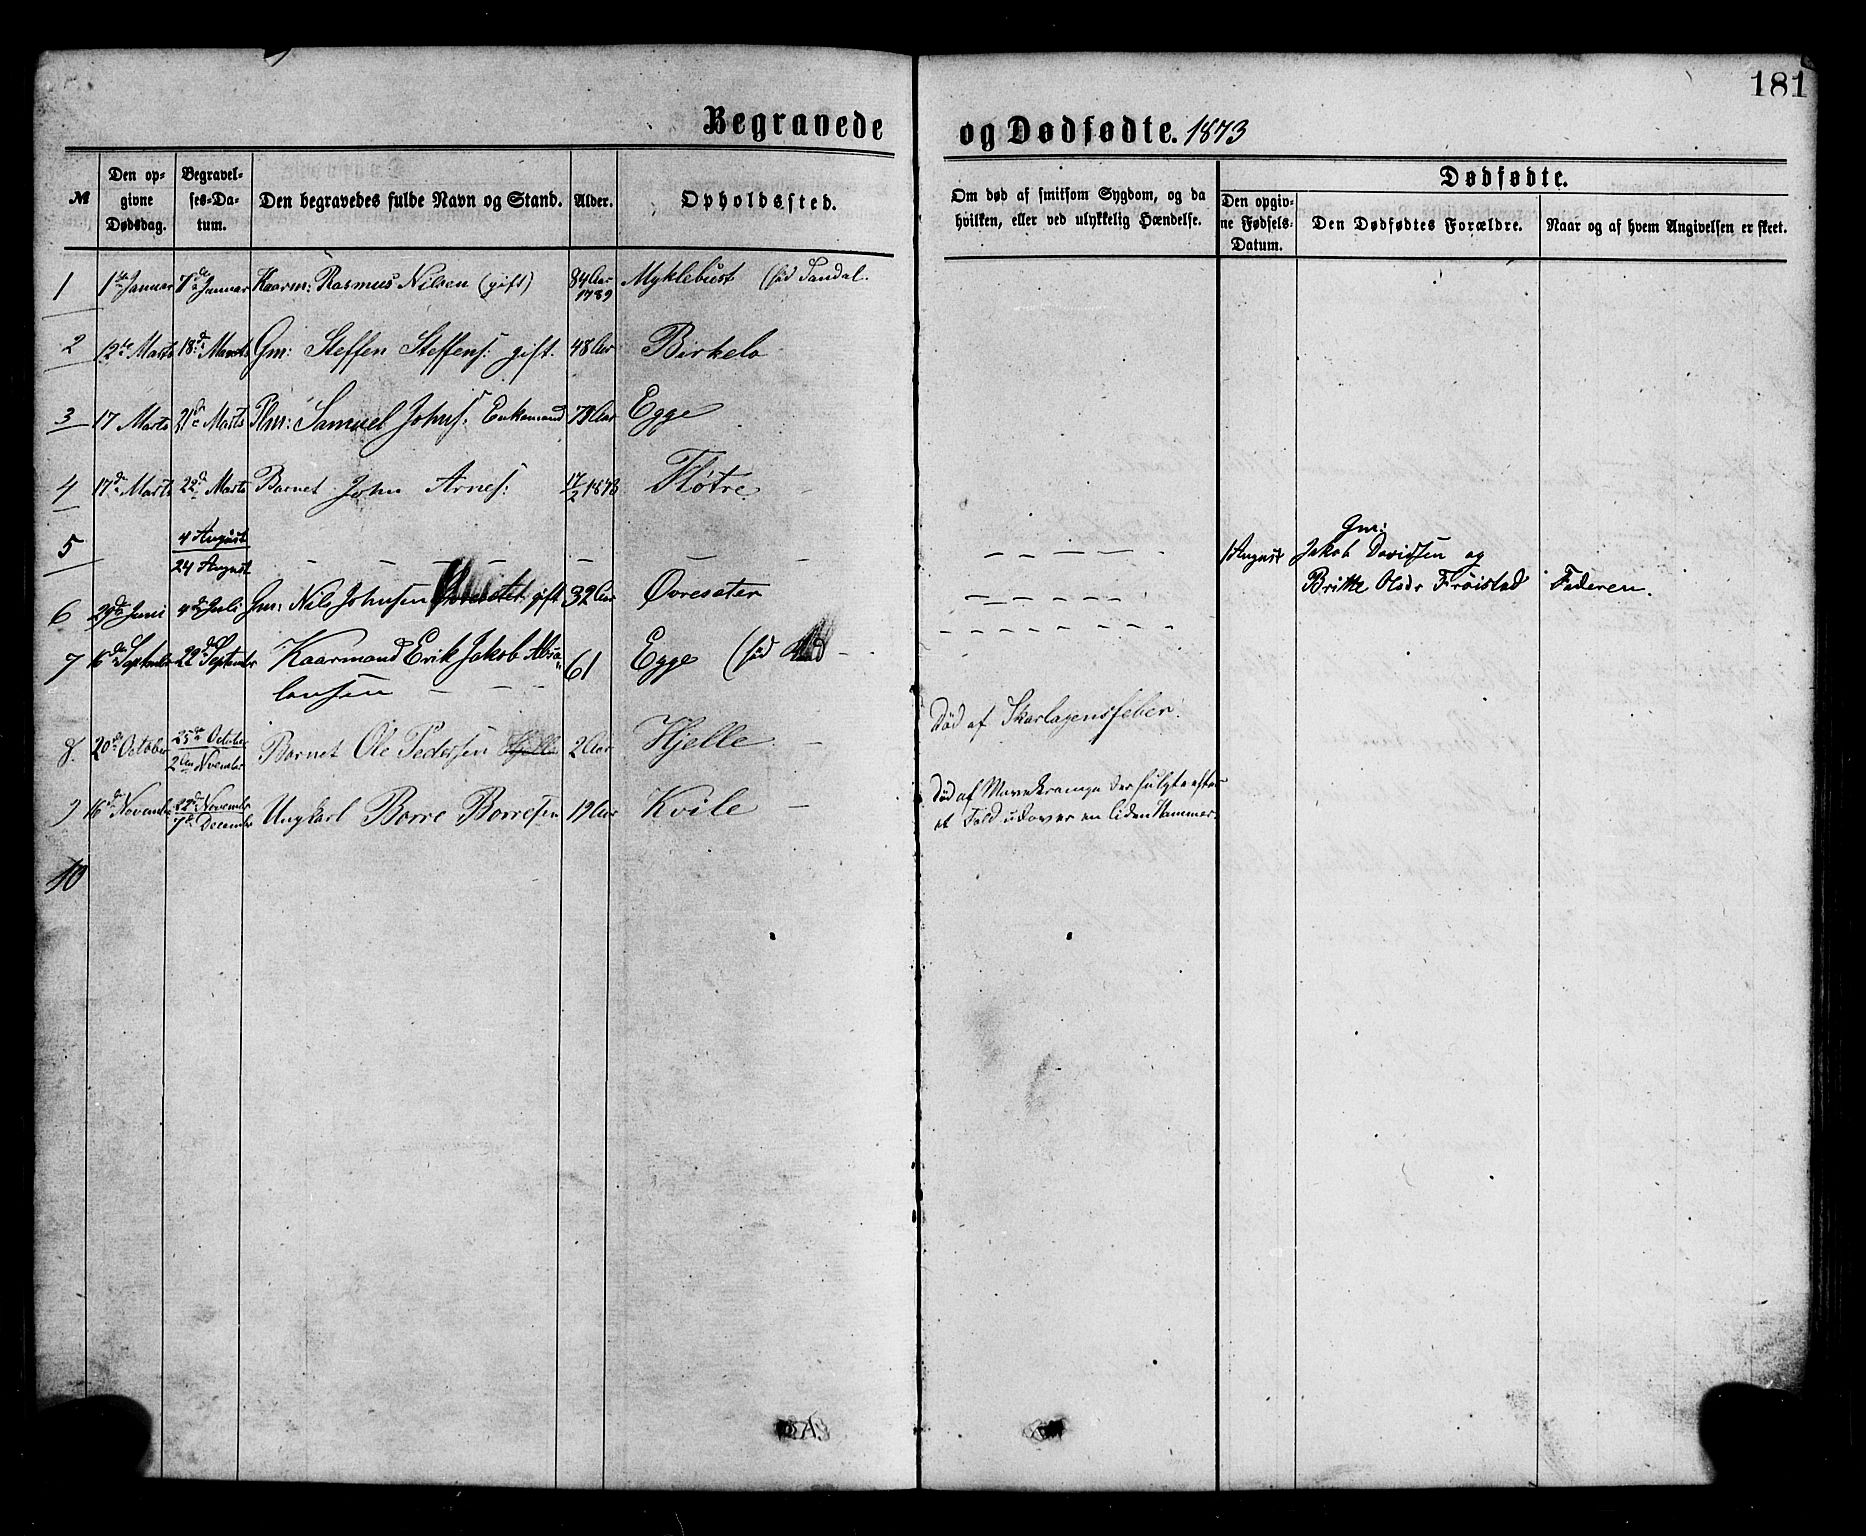 181
Begravede og Dødfødte. 1873
№ Den opgivne Dødsdag. Begravelses-Datum. Den begravedes fulde Navn og Stand. Alder. Opholdssted. Om død af smitsom Sygdom, og da hvilken, eller ved ulykkelig Hændelse. Dødfødte. Den opgivne Fødsels-Datum. Den Dødfødtes Forældre. Naar og af hvem Angivelsen er skeet.
1 1ste Januar 7de Januar Kaarm: Rasmus Nilsen (gift) 84 Aar 1789 Myklebust (fød Sandal.
2 12te Marts 18de Marts Gm: Steffen Steffens: gift. 48 Aar Birkelo
3 17 Marts 21de Marts Plm: Samuel Johns: Enkemand 79 Aar Egge
4 17de Marts 22de Marts Barnet John Arnes: 17/2 1873 Fløtre
5 4 August 24 August – – – – 1 August Gm: Jakob Davidsen og Britte Olsdr Frøistad Faderen.
6 29de Juni 4de Juli Gm: Nils Johnsen gift 32 Aar Øvresæter – – – –
7 16de September 22de September Kaarmand Erik Jakob Absalonsen – – – 61 Egge (fød – – – –
8. 20de October 25de October 2den November Barnet Ole Pedersen Hjelle 2 Aar Hjelle Død af Skarlagensfeber.
9 16de November 22de November 7de December Ungkarl Borre Borresen 19 Aar Kvile Død af Mavekrampe der fulgte efter et Fald udover en liden Hammer.
10